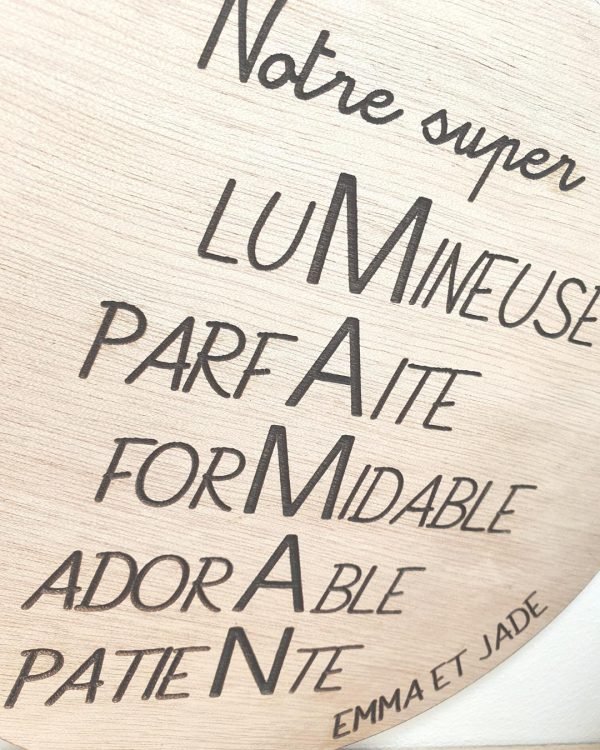 Notre super
LUMINEUSE
PARFAITE
FORMIDABLE
ADORABLE
PATIENTE
EMMA ET JADE